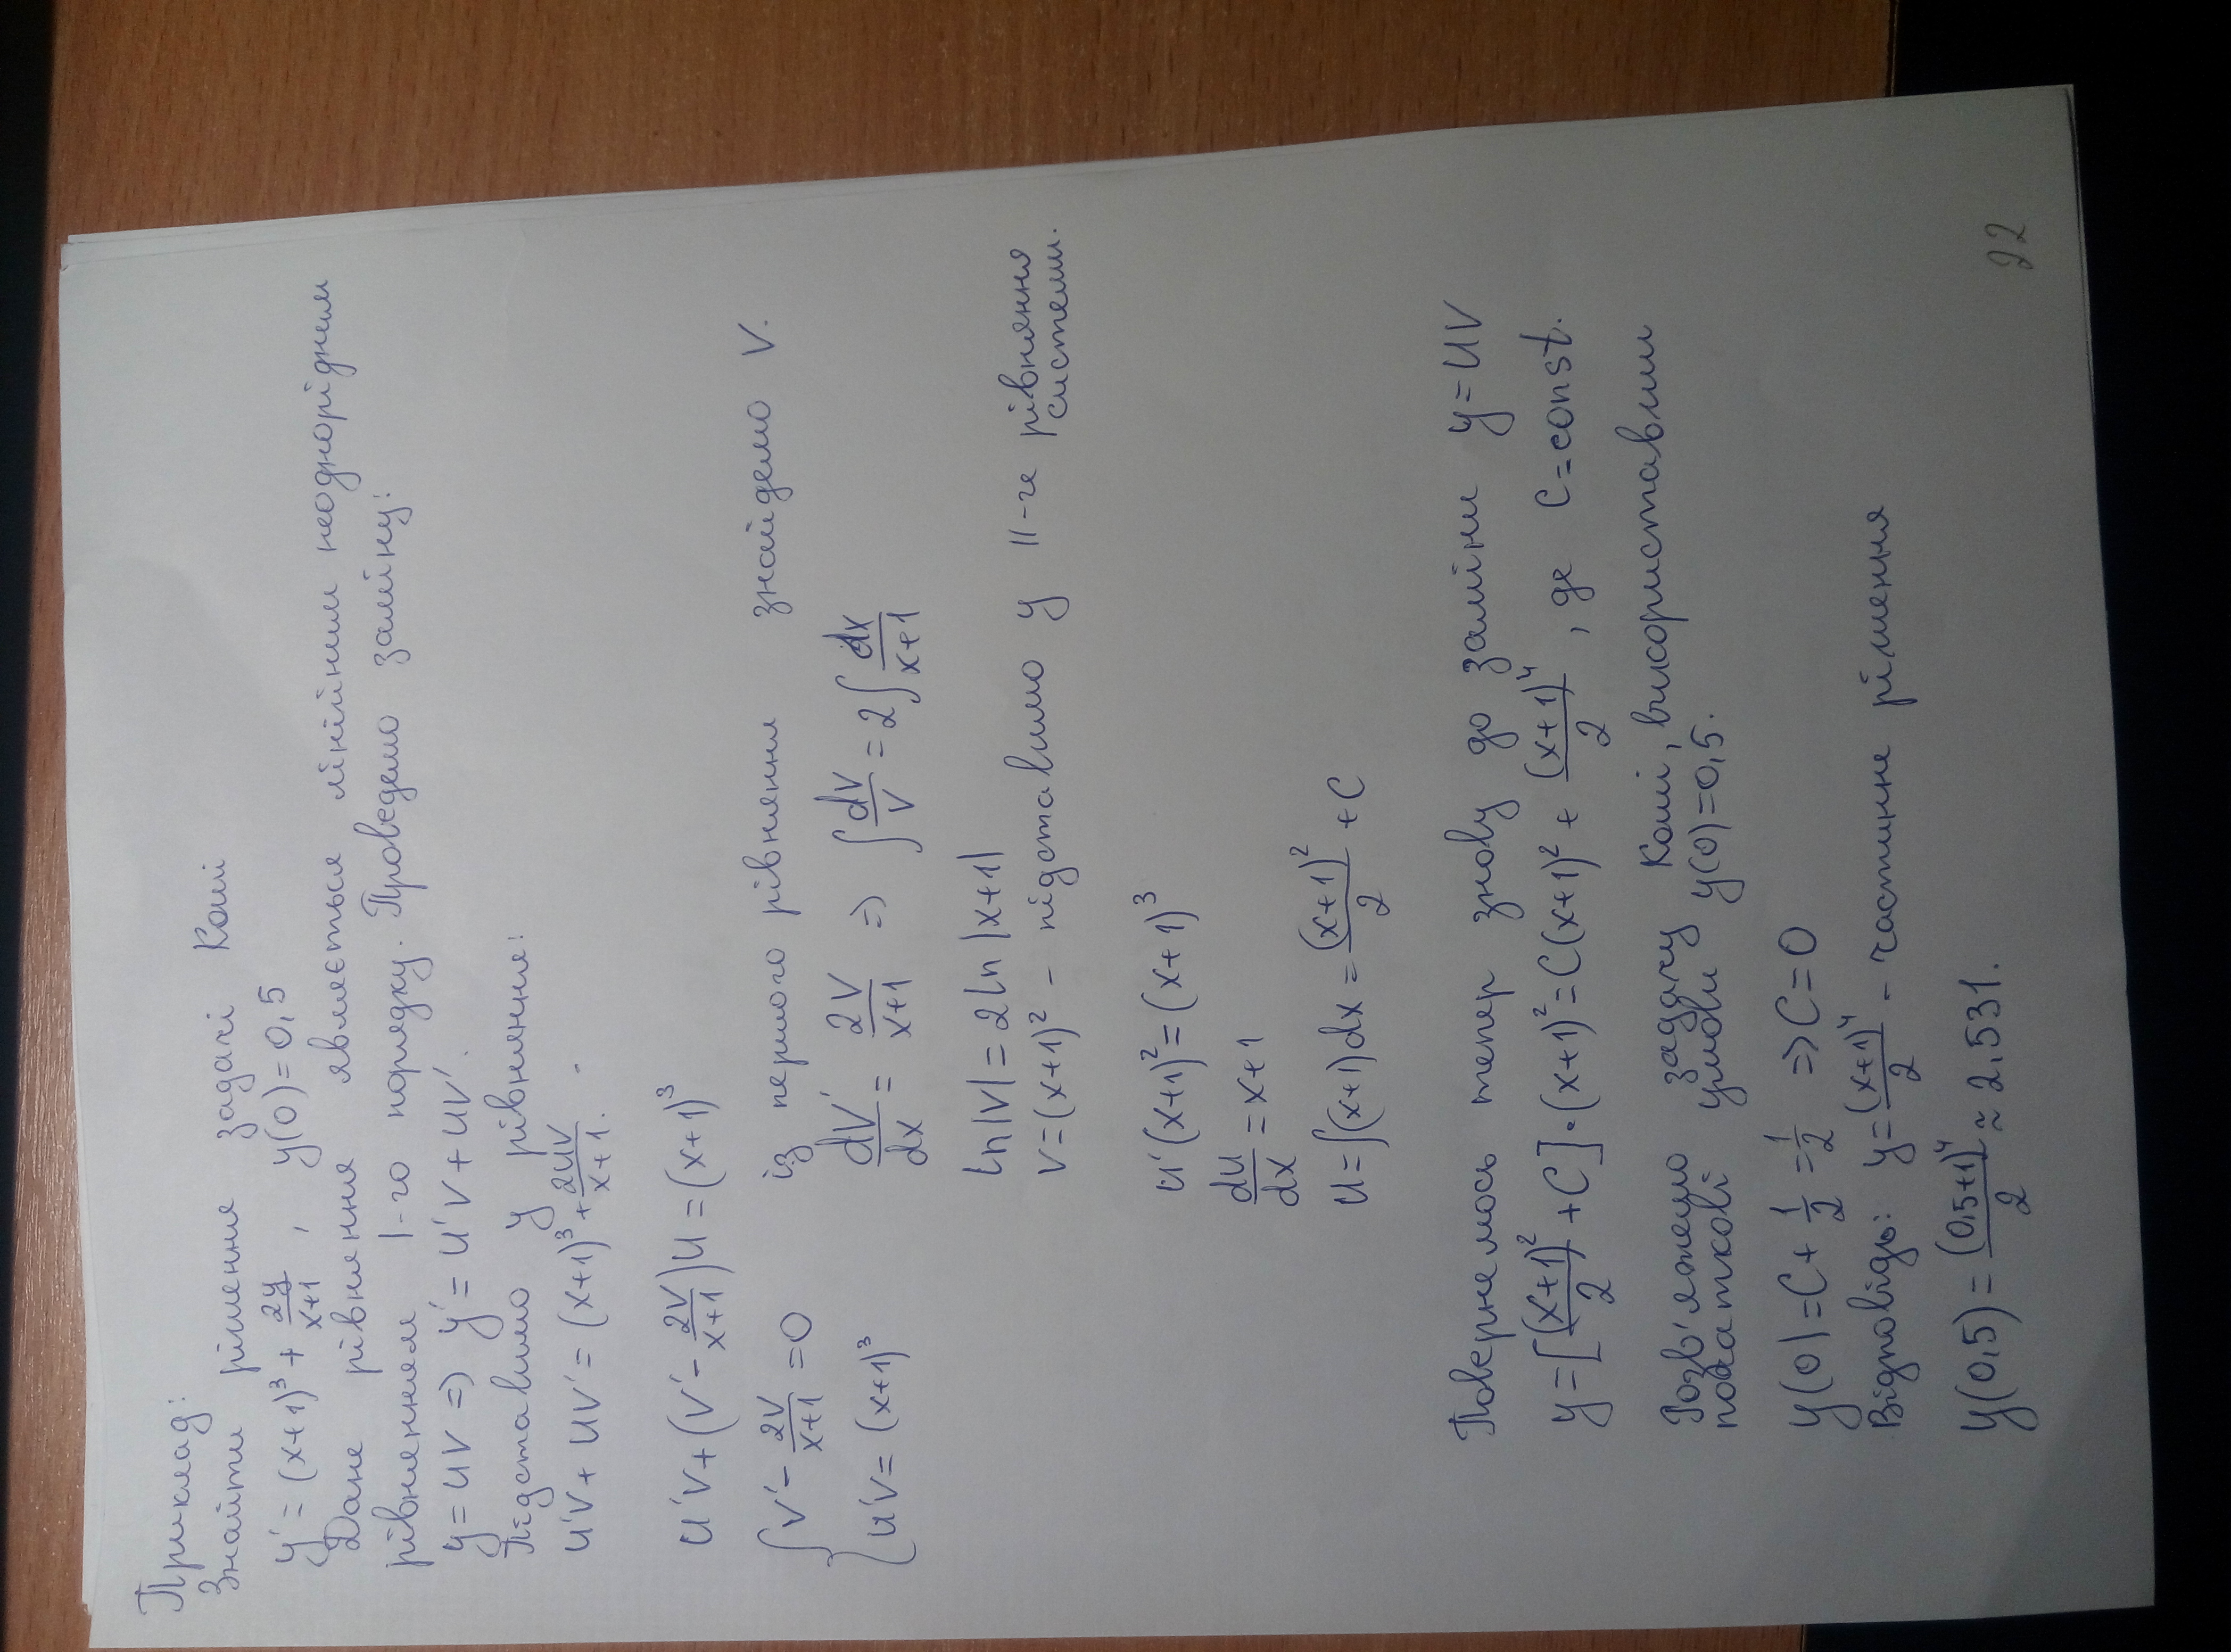 Приклад:
Знайти рішення задачі Коші
y' = (x+1)³ + 2y/(x+1) , y(0)=0,5
Дане рівняння являється лінійним неоднорідним
рівнянням 1-го порядку. Проведемо заміну:
y = uv => y' = u'v + uv'.
Підставимо у рівняння:
u'v + uv' = (x+1)³ + 2uv/(x+1).
u'v + (v' - 2v/(x+1))u = (x+1)³
{ v' - 2v/(x+1) = 0
u'v = (x+1)³
із першого рівняння знайдемо v.
dv'/dx = 2v/(x+1) => ∫dv/v = 2∫dx/(x+1)
ln|v| = 2ln|x+1|
v = (x+1)² - підставимо у II-ге рівняння
системи.
u'(x+1)² = (x+1)³
du/dx = x+1
u = ∫(x+1)dx = (x+1)²/2 + C
Повернемось тепер знову до заміни y = uv
y = [(x+1)²/2 + C]·(x+1)² = C(x+1)² + (x+1)⁴/2 , де C = const.
Розв'яжемо задачу Коші, використавши
початкові умови y(0)=0,5.
y(0) = C + 1/2 = 1/2 => C = 0
Відповідь: y = (x+1)⁴/2 - частинне рішення
y(0,5) = (0,5+1)⁴/2 ≈ 2,531.
22